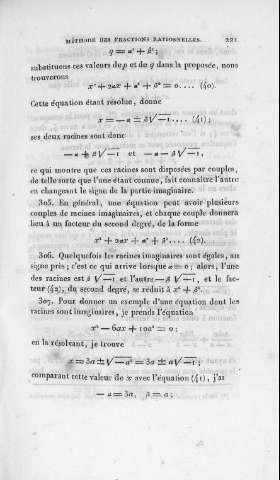 MÉTHODE DES FRACTIONS RATIONNELLES. 221
q = α² + β² ;
substituons ces valeurs de p et de q dans la proposée, nous
trouverons
x² + 2αx + α² + β² = 0.... (40).
Cette équation étant résolue, donne
x = — α ± β √—1.... (41) ;
ses deux racines sont donc
— α + β √—1 et — α — β √—1,
ce qui montre que ces racines sont disposées par couples,
de telle sorte que l'une étant connue, fait connaître l'autre
en changeant le signe de la partie imaginaire.
305. En général, une équation peut avoir plusieurs
couples de racines imaginaires, et chaque couple donnera
lieu à un facteur du second degré, de la forme
x² + 2αx + α² + β².... (42).
306. Quelquefois les racines imaginaires sont égales, au
signe près ; c'est ce qui arrive lorsque α = 0 ; alors, l'une
des racines est β √—1 et l'autre — β √—1, et le fac-
teur (42), du second degré, se réduit à x² + β².
307. Pour donner un exemple d'une équation dont les
racines sont imaginaires, je prends l'équation
x² — 6ax + 10a² = 0 ;
en la résolvant, je trouve
x = 3a ± √—a² = 3a ± a√—1 ;
comparant cette valeur de x avec l'équation (41), j'ai
— α = 3a, β = a ;